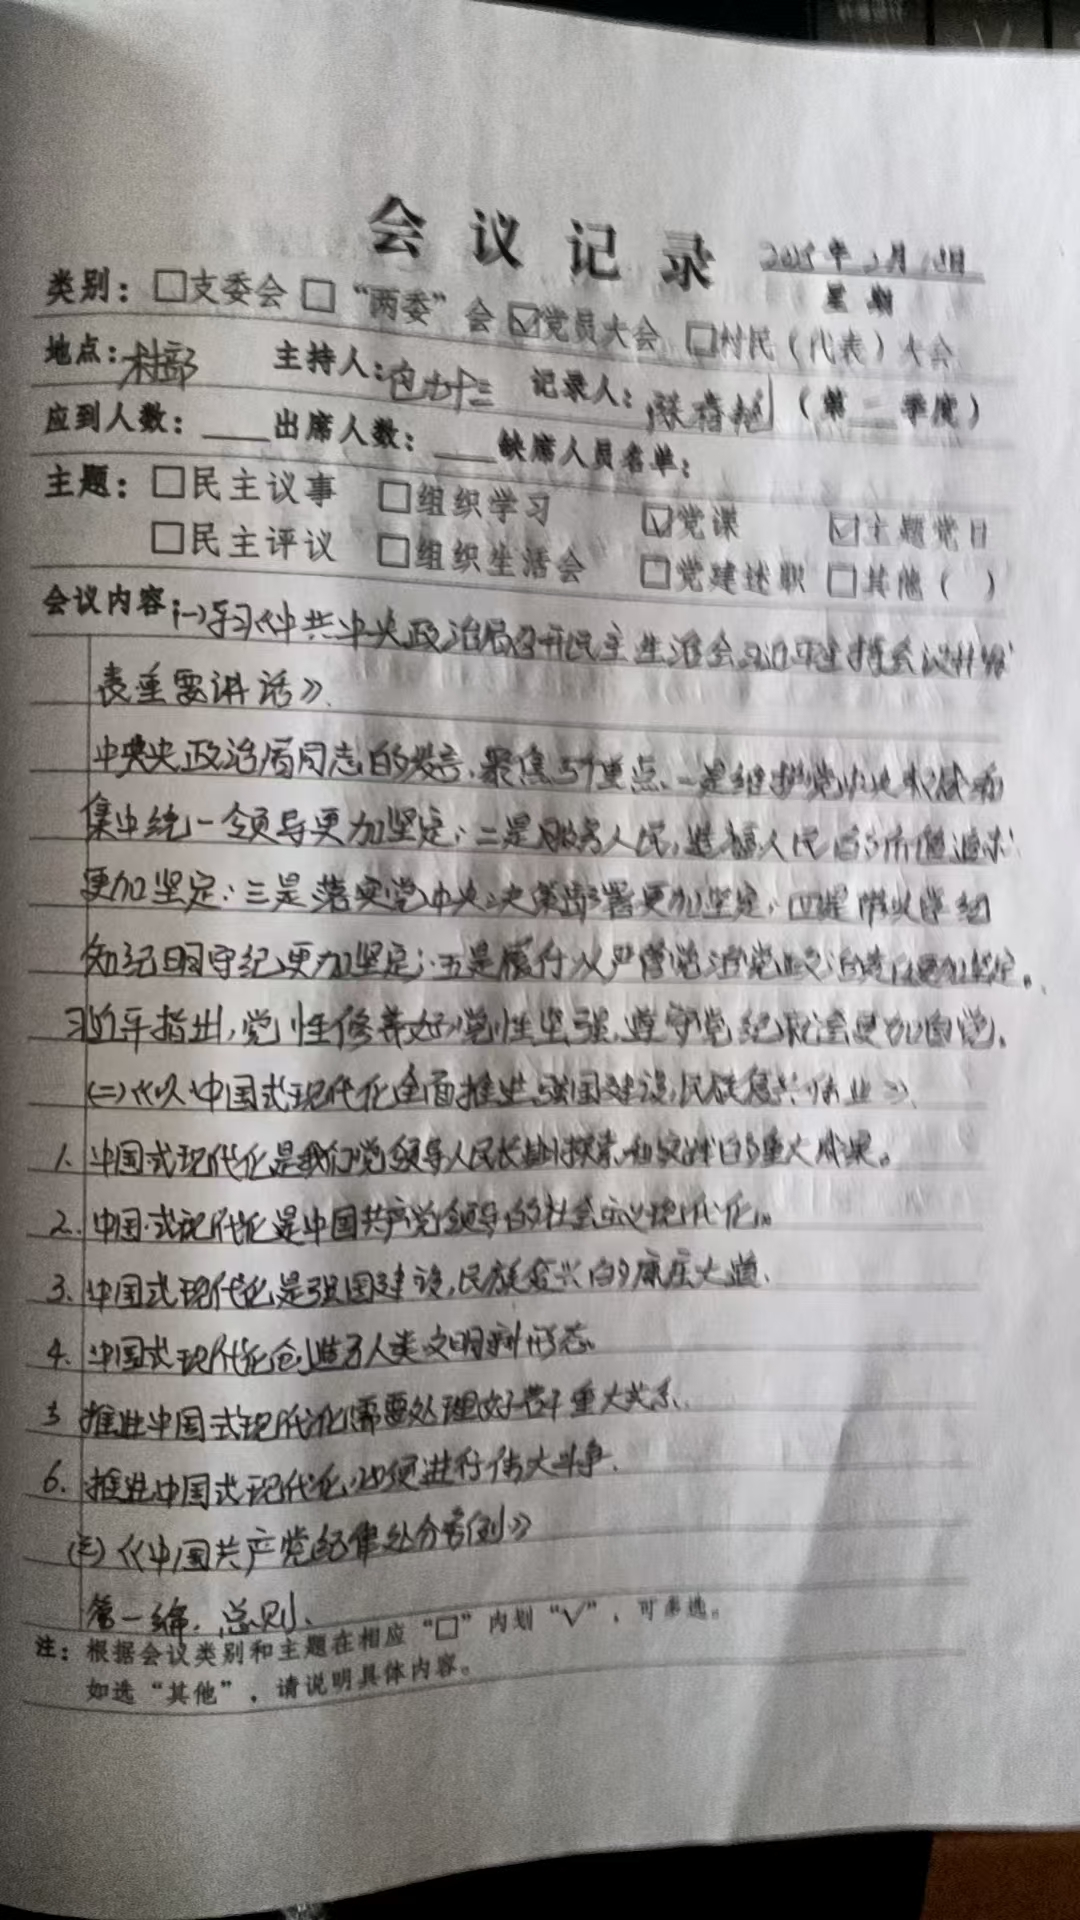 会议记录
2025年2月 日
星期
类别：□支委会 □“两委”会 ☑党员大会 □村民（代表）大会
地点：村部 主持人： 记录人：张 （第二季度）
应到人数：____出席人数：____缺席人员名单：
主题：□民主议事 □组织学习 ☑党课 ☑主题党日
□民主评议 □组织生活会 □党建述职 □其他（ ）
会议内容：(一)学习《中共中央政治局召开民主生活会习近平主持会议并发
表重要讲话》.
中央政治局同志的发言,聚焦5个重点.一是维护党中央权威和
集中统一领导更加坚定;二是服务人民,造福人民的价值追求
更加坚定;三是落实党中央决策部署更加坚定;四是带头学纪
知纪明纪守纪更加坚定;五是履行从严管党治党政治责任更加坚定。
习近平指出,党性修养好,党性坚强,遵守党纪就会更加自觉.
(二)《以中国式现代化全面推进强国建设,民族复兴伟业》.
1.中国式现代化是我们党领导人民长期探索和实践的重大成果。
2.中国式现代化是中国共产党领导的社会主义现代化。
3.中国式现代化是强国建设,民族复兴的康庄大道.
4.中国式现代化创造了人类文明新形态
5 推进中国式现代化需要处理好若干重大关系.
6.推进中国式现代化必须进行伟大斗争.
(三)《中国共产党纪律处分条例》
第一编.总则.
注：根据会议类别和主题在相应“□”内划“√”，可多选。
如选“其他”，请说明具体内容。